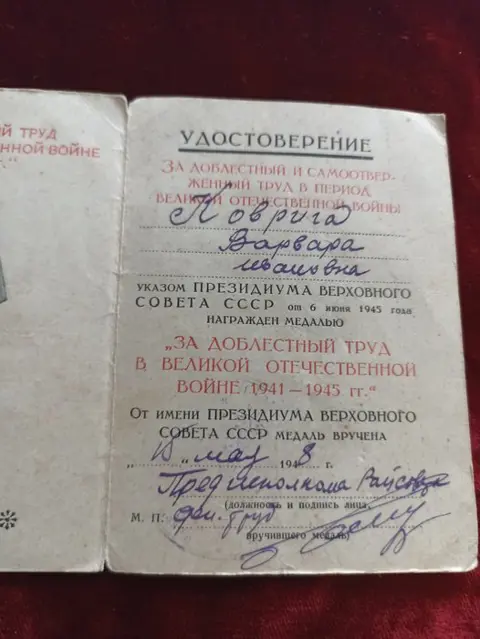 ЫЙ ТРУД
ЕННОЙ ВОЙНЕ
г."
УДОСТОВЕРЕНИЕ
ЗА ДОБЛЕСТНЫЙ И САМООТВЕР-
ЖЕННЫЙ ТРУД В ПЕРИОД
ВЕЛИКОЙ ОТЕЧЕСТВЕННОЙ ВОЙНЫ
Коврига
Варвара
Ивановна
УКАЗОМ ПРЕЗИДИУМА ВЕРХОВНОГО
СОВЕТА СССР от 6 июня 1945 года
НАГРАЖДЕН МЕДАЛЬЮ
„ЗА ДОБЛЕСТНЫЙ ТРУД
В ВЕЛИКОЙ ОТЕЧЕСТВЕННОЙ
ВОЙНЕ 1941—1945 гг."
От имени ПРЕЗИДИУМА ВЕРХОВНОГО
СОВЕТА СССР МЕДАЛЬ ВРУЧЕНА
„10" мая 1948 г.
Пред исполкома Райсовета
(должность и подпись лица,
М. П. деп. труд
вручившего медаль)